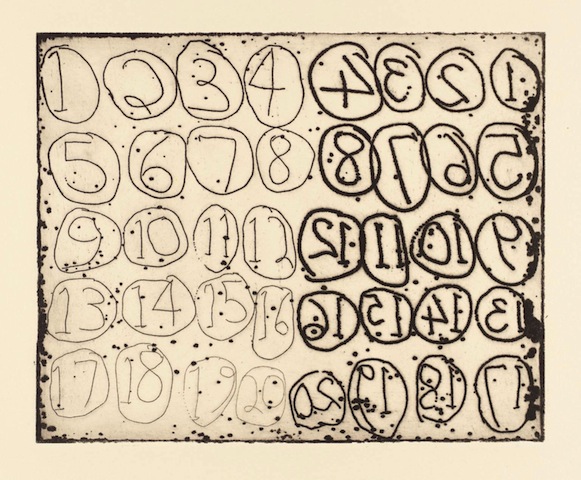 1 2 3 4 4 3 2 1
5 6 7 8 8 7 6 5
9 10 11 12 12 11 10 9
13 14 15 16 16 15 14 13
17 18 19 20 20 19 18 17